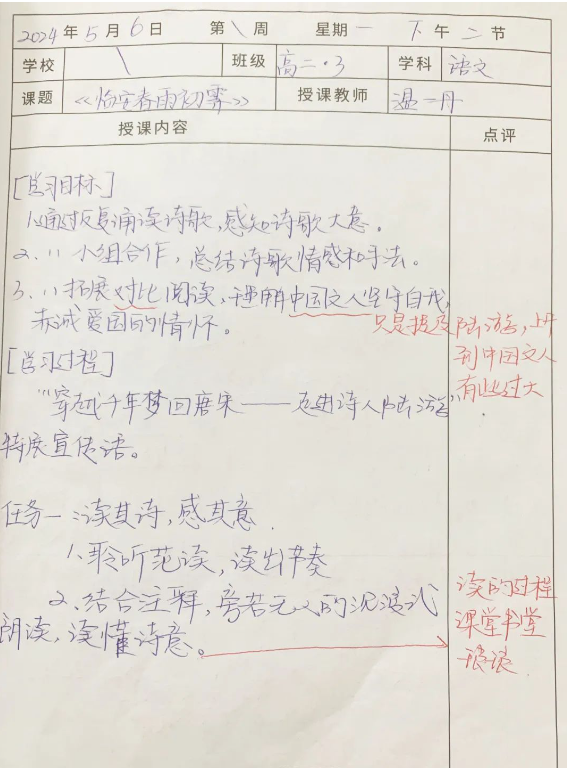 2024年5月6日 第\周 星期一 下午二节
学校 \ 班级 高二·3 学科 语文
课题 《临安春雨初霁》 授课教师 温一丹
授课内容 点评
[学习目标]
1.通过反复诵读诗歌,感知诗歌大意。
2. 〃 小组合作,总结诗歌情感和手法。
3. 〃 拓展对比阅读,理解中国文人坚守自我,
赤诚爱国的情怀。
只是提及陆游,上升
到中国文人
有些过大
[学习过程]
"穿越千年梦回唐宋——走进诗人陆游"
特展宣传语。
任务一:读其诗,感其意.
1.聆听范读,读出节奏
2.结合注释,旁若无人的沉浸式
朗读,读懂诗意。
读的过程
课堂书堂
琅琅